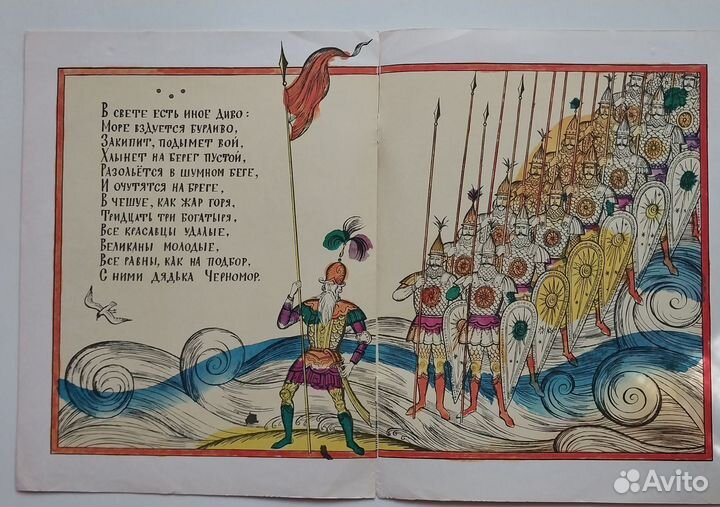 В СВЕТЕ ЕСТЬ ИНОЕ ДИВО:
МОРЕ ВЗДУЕТСЯ БУРЛИВО,
ЗАКИПИТ, ПОДЫМЕТ ВОЙ,
ХЛЫНЕТ НА БЕРЕГ ПУСТОЙ,
РАЗОЛЬЁТСЯ В ШУМНОМ БЕГЕ,
И ОЧУТЯТСЯ НА БРЕГЕ,
В ЧЕШУЕ, КАК ЖАР ГОРЯ,
ТРИДЦАТЬ ТРИ БОГАТЫРЯ,
ВСЕ КРАСАВЦЫ УДАЛЫЕ,
ВЕЛИКАНЫ МОЛОДЫЕ,
ВСЕ РАВНЫ, КАК НА ПОДБОР,
С НИМИ ДЯДЬКА ЧЕРНОМОР.
Avito